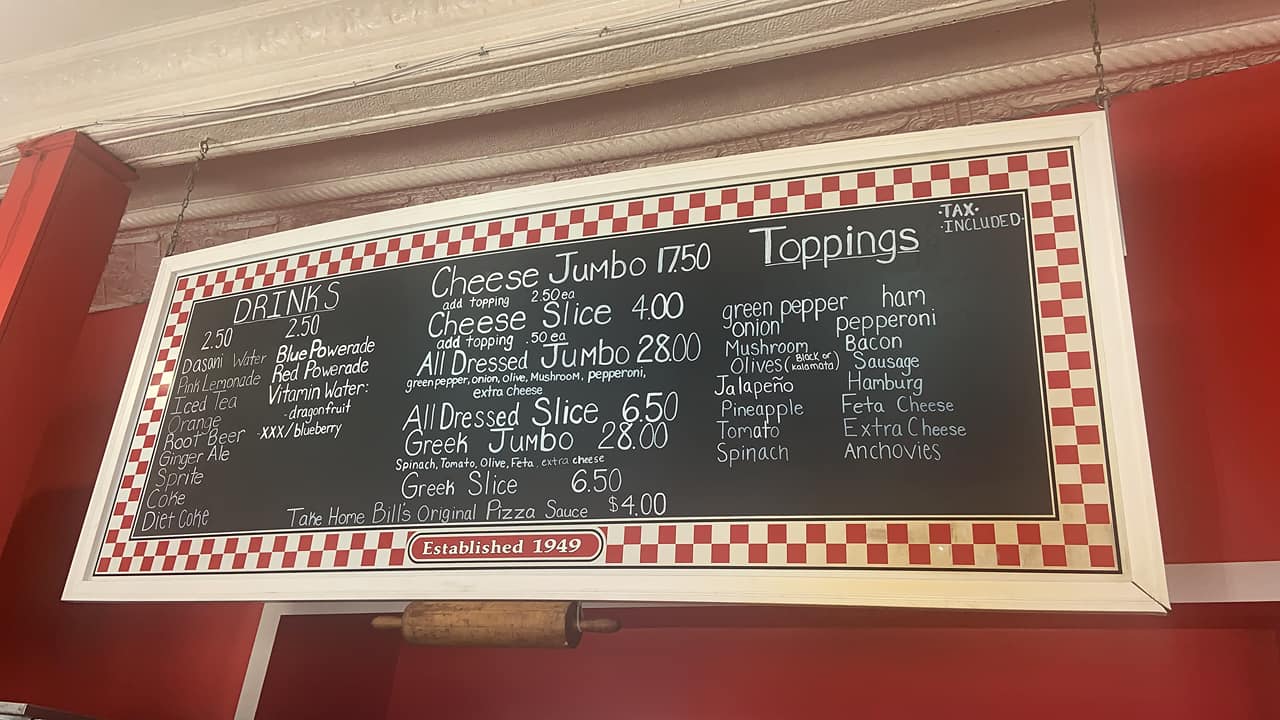 DRINKS
2.50 2.50
Dasani Water
Pink Lemonade
Iced Tea
Orange
Root Beer
Ginger Ale
Sprite
Coke
Diet Coke
Blue Powerade
Red Powerade
Vitamin Water:
- dragonfruit
- XXX/blueberry
Cheese Jumbo 17.50
add topping 2.50 ea
Cheese Slice 4.00
add topping .50 ea
All Dressed Jumbo 28.00
green pepper, onion, olive, Mushroom, pepperoni,
extra cheese
All Dressed Slice 6.50
Greek Jumbo 28.00
Spinach, Tomato, Olive, Feta, extra cheese
Greek Slice 6.50
Take Home Bill's Original Pizza Sauce $4.00
Toppings
·TAX·
·INCLUDED·
green pepper
onion
Mushroom
Olives (Black or Kalamata)
Jalapeño
Pineapple
Tomato
Spinach
ham
pepperoni
Bacon
Sausage
Hamburg
Feta Cheese
Extra Cheese
Anchovies
Established 1949